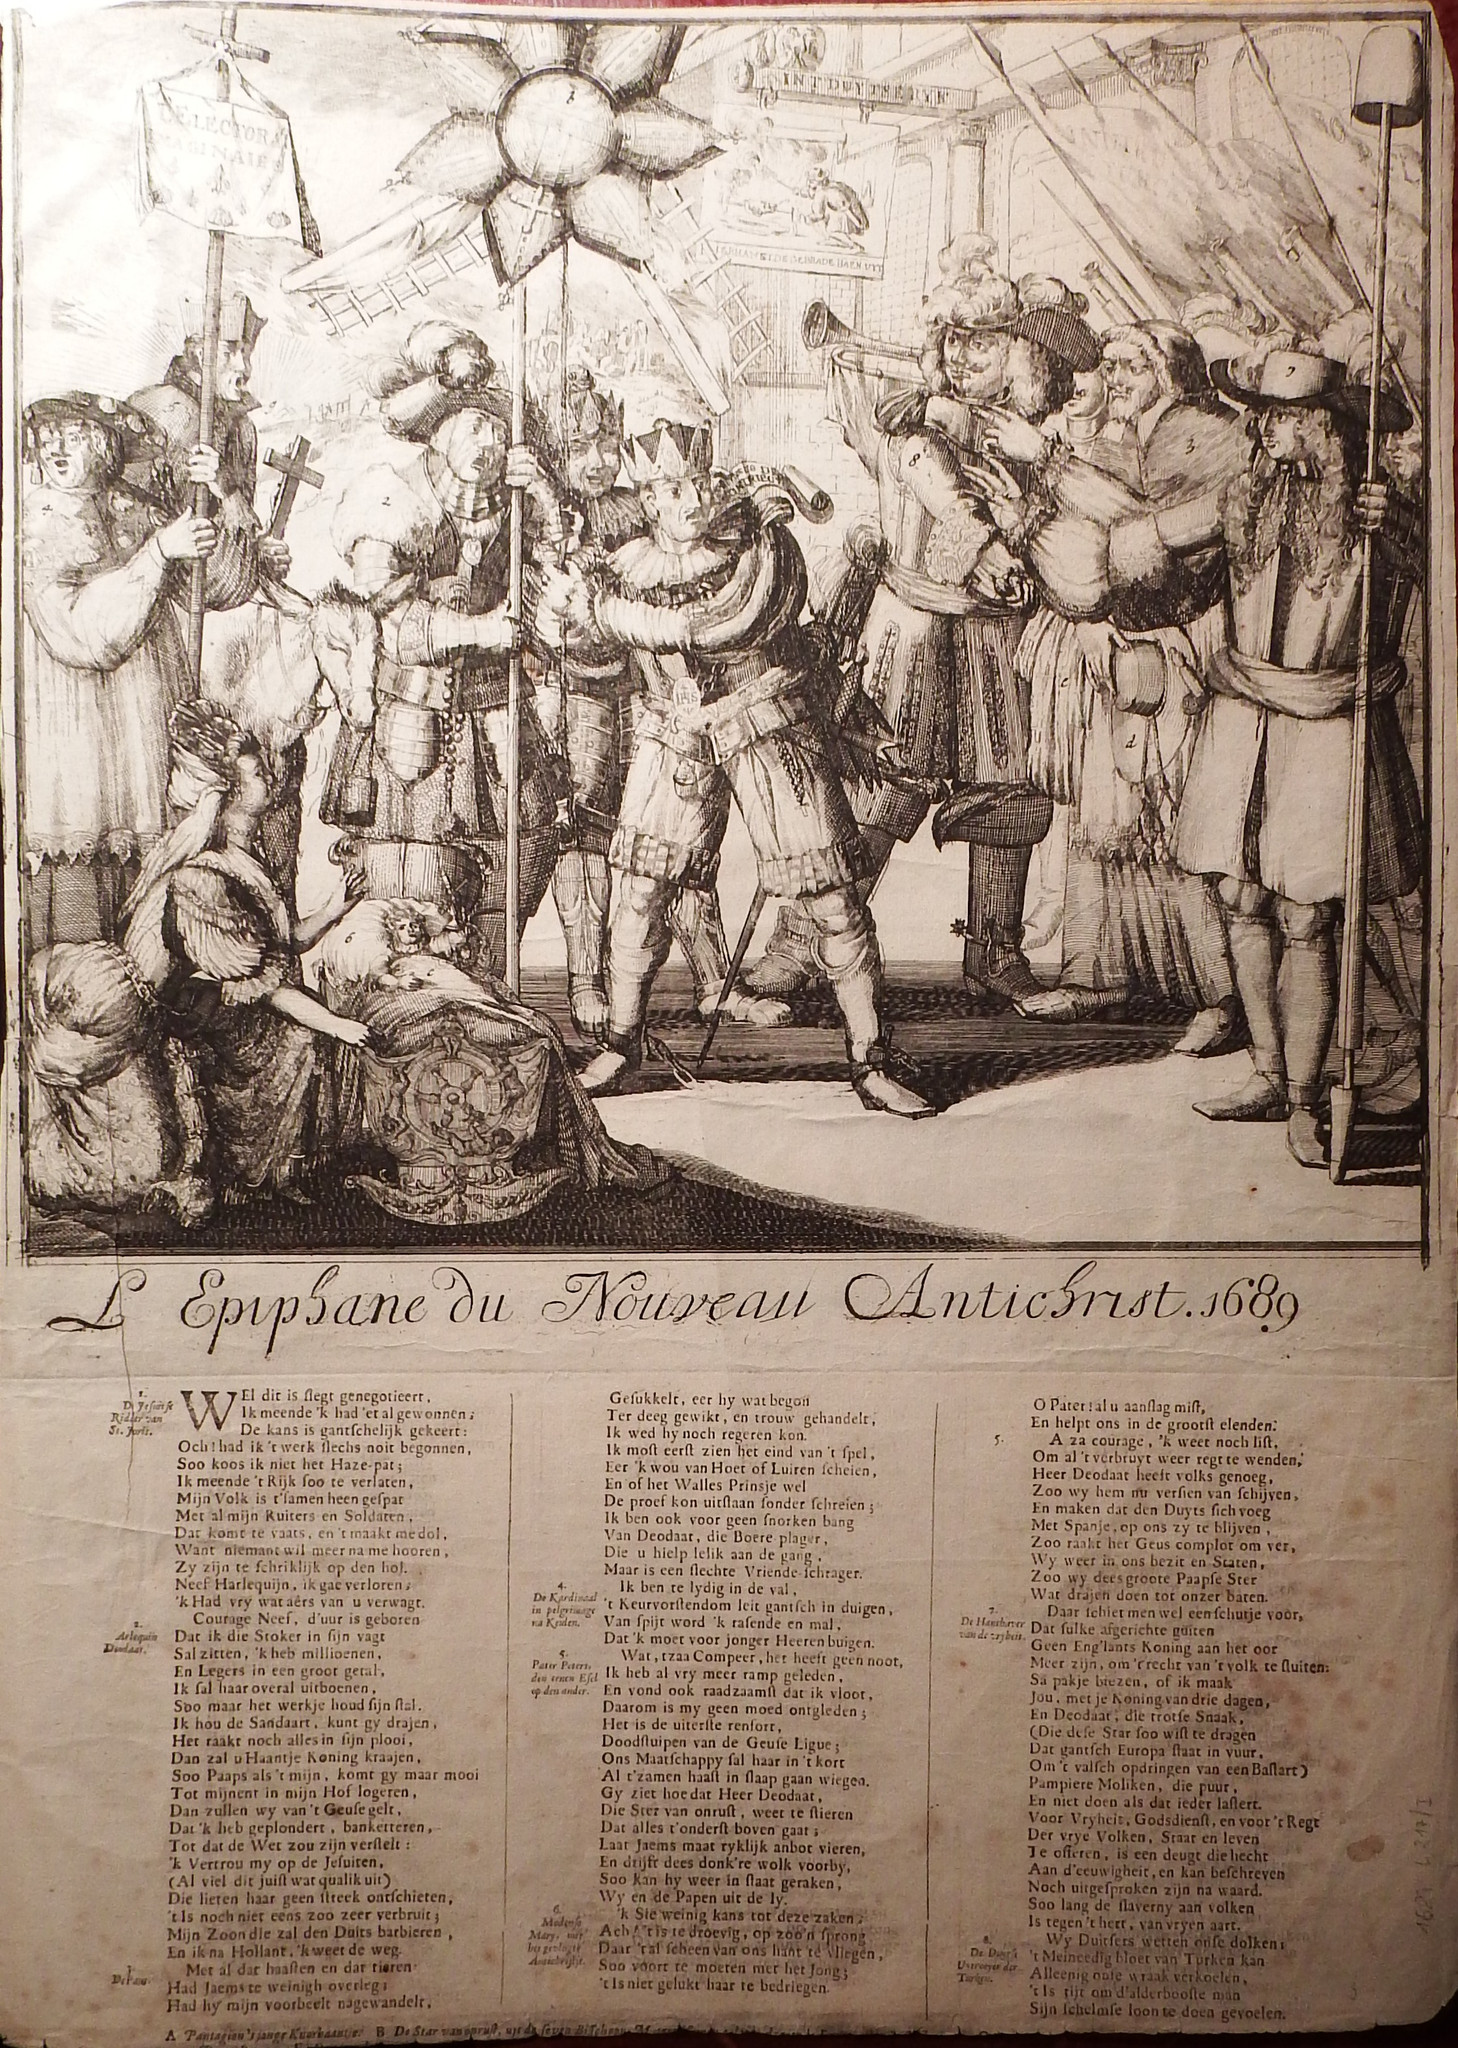 L'Epiphane du Nouveau Antichrist. 1689
1.
De Jesuitse
Ridder van
St. Joris.
WEl dit is slegt genegotieert,
Ik meende 'k had 'et al gewonnen;
De kans is gantschelijk gekeert:
Och! had ik 't werk slechs noit begonnen,
Soo koos ik niet het Haze-pat;
Ik meende 't Rijk soo te verlaten,
Mijn Volk is t'samen heen gespat
Met al mijn Ruiters en Soldaten,
Dat komt te vaats, en 't maakt me dol,
Want niemant wil meer na me hooren,
Zy zijn te schriklijk op den hol.
Neef Harlequijn, ik gae verloren;
'k Had vry wat aêrs van u verwagt.
2.
Arlequin
Deodaat.
Courage Neef, d'uur is geboren
Dat ik die Stoker in sijn vagt
Sal zitten, 'k heb millioenen,
En Legers in een groot getal,
Ik sal haar overal uitboenen,
Soo maar het werkje houd sijn stal.
Ik hou de Sandaart, kunt gy drajen,
Het raakt noch alles in sijn plooi,
Dan zal u Haantje Koning kraajen,
Soo Paaps als 't mijn, komt gy maar mooi
Tot mijnent in mijn Hof logeren,
Dan zullen wy van 't Geuse gelt,
Dat 'k heb geplondert, banketteren,
Tot dat de Wet zou zijn verstelt:
'k Vertrou my op de Jesuiten,
(Al viel dit juist wat qualik uit)
Die lieten haar geen streek ontschieten,
't Is noch niet eens zoo zeer verbruit;
Mijn Zoon die zal den Duits barbieren,
En ik na Hollant, 'k weet de weg.
3.
Met al dat haasten en dat tieren
Had Jaems te weinigh overleg;
Had hy mijn voorbeelt nagewandelt,
Gesukkelt, eer hy wat begon
Ter deeg gewikt, en trouw gehandelt,
Ik wed hy noch regeren kon.
Ik most eerst zien het eind van 't spel,
Eer 'k wou van Hoer of Luiren scheien,
En of het Walles Prinsje wel
De proef kon uitstaan sonder schreien;
Ik ben ook voor geen snorken bang
Van Deodaat, die Boere-plager,
Die u hielp lelik aan de gang,
Maar is een slechte Vriende-schrager.
4.
De Kardinaal
in pelgrimage
na Keulen.
Ik ben te lydig in de val,
't Keurvorstendom leit gantsch in duigen,
Van spijt word 'k rasende en mal,
Dat 'k moet voor jonger Heeren buigen.
5.
Pater Peters,
den eenen Esel
op den ander.
Wat, tzaa Compeer, het heeft geen noot,
Ik heb al vry meer ramp geleden,
En vond ook raadzaamst dat ik vloot,
Daarom is my geen moed ontgleden;
Het is de uiterste renfort,
Doodstuipen van de Geuse Ligue;
Ons Maatschappy sal haar in 't kort
Al t'zamen haast in slaap gaan wiegen.
Gy ziet hoe dat Heer Deodaat,
Die Ster van onrust, weet te stieren
Dat alles t'onderst boven gaat;
Laat Jaems maat ryklijk anbot vieren,
En drijft dees donk're wolk voorby,
Soo kan hy weer in staat geraken,
Wy en de Papen uit de ly.
6.
'k Sie weinig kans tot deze zaken;
Ach! 't is te droevig, op zoo'n sprong
Daar 't al scheen van ons hant te vliegen,
Soo voort te moeten met het Jong;
't Is niet gelukt haar te bedriegen.
O Pater! al u aanslag mist,
En helpt ons in de grootst elenden.
5.
A za courage, 'k weet noch list,
Om al 't verbruyt weer regt te wenden,
Heer Deodaat heeft volks genoeg,
Zoo wy hem nu versien van schijven,
En maken dat den Duyts sich voeg
Met Spanje, op ons zy te blijven,
Zoo raakt het Geus complot om ver,
Wy weer in ons bezit en Staten,
Zoo wy dees groote Paapse Ster
Wat drajen doen tot onzer baten.
7.
De Hanthaver
van de vryheit.
Daar schiet men wel een schutje voor,
Dat sulke afgerichte guiten
Geen Eng'lants Koning aan het oor
Meer zijn, om 't recht van 't volk te sluiten:
Sa pakje biezen, of ik maak
Jou, met je Koning van drie dagen,
En Deodaat, die trotse Snaak,
(Die dese Star soo wist te dragen
Dat gantsch Europa staat in vuur,
Om 't valsch opdringen van een Bastart)
Pampiere Moliken, die puur,
En niet doen als dat ieder lastert.
Voor Vryheit, Godsdienst, en voor 't Regt
Der vrye Volken, Staat en leven
Te offeren, is een deugt die hecht
Aan d'eeuwigheit, en kan beschreven
Noch uitgesproken zijn na waard.
Soo lang de slaverny aan volken
Is tegen 't hert, van vryen aart.
8.
De Duitse
Uitroeyer der
Turken.
Wy Duitsers wetten onse dolken;
't Meineedig bloet van Turken kan
Alleenig onse wraak verkoelen,
't Is tijt om d'alderbooste man
Sijn schelmse loon te doen gevoelen.